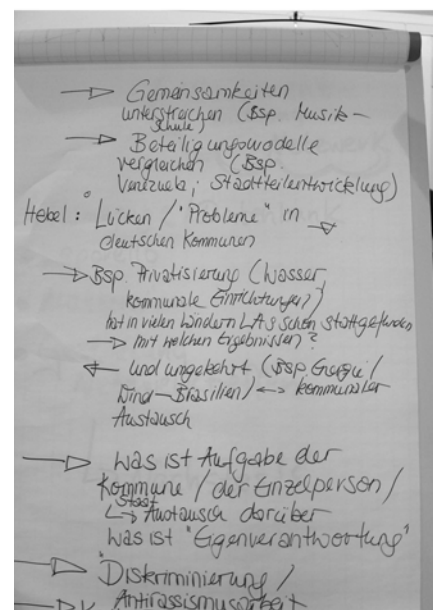 → Gemeinsamkeiten
unterstreichen (Bsp. Musik-
schule)
→ Beteiligungsmodelle
vergleichen (Bsp.
Venezuela, Stadtteilentwicklung)
Hebel: Lücken / "Probleme" in
deutschen Kommunen →
→ Bsp. Privatisierung (Wasser,
kommunale Einrichtungen)
hat in vielen Ländern LAs schon stattgefunden
→ mit welchen Ergebnissen?
← und umgekehrt (Bsp. Energie/
Wind-Brasilien) <-> kommunaler
Austausch
→ Was ist Aufgabe der
Kommune / der Einzelperson /
Staat
↳ Austausch darüber
was ist "Eigenverantwortung"
→ "Diskriminierung /
Antirassismusarbeit